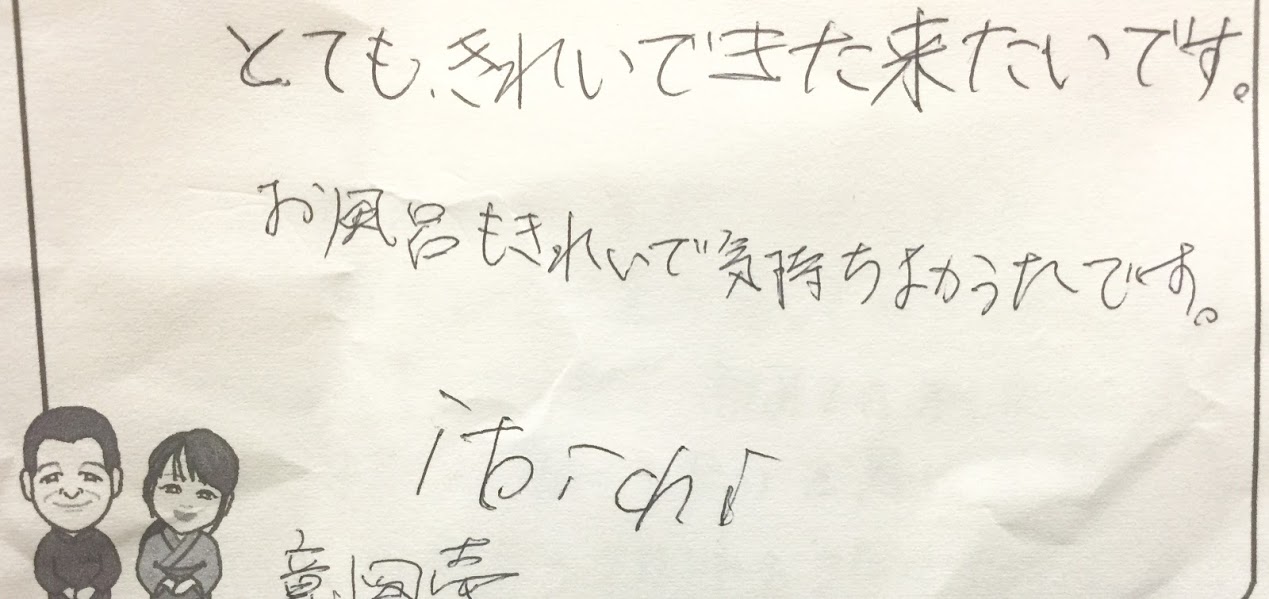 とても、きれいでまた来たいです。
お風呂もきれいで気持ちよかったです。